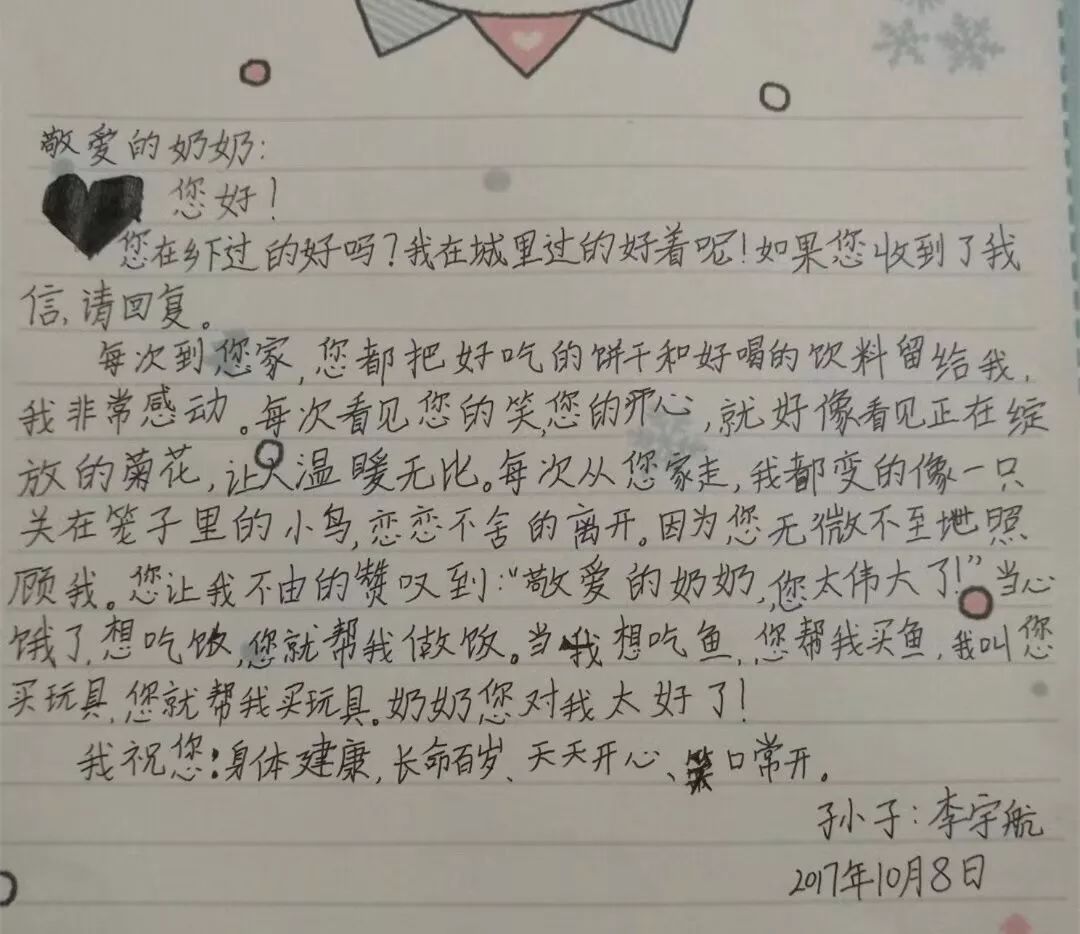 敬爱的奶奶：
您好！
您在乡下过的好吗？我在城里过的好着呢！如果您收到了我
信，请回复。
每次到您家，您都把好吃的饼干和好喝的饮料留给我，
我非常感动。每次看见您的笑，您的开心，就好像看见正在绽
放的菊花，让人温暖无比。每次从您家走，我都变的像一只
关在笼子里的小鸟，恋恋不舍的离开。因为您无微不至地照
顾我。您让我不由的赞叹到：“敬爱的奶奶，您太伟大了！”当
饿了，想吃饭，您就帮我做饭。当我想吃鱼，您帮我买鱼，我叫您
买玩具，您就帮我买玩具。奶奶您对我太好了！
我祝您：身体建康，长命百岁、天天开心、笑口常开。
孙子：李宇航
2017年10月8日